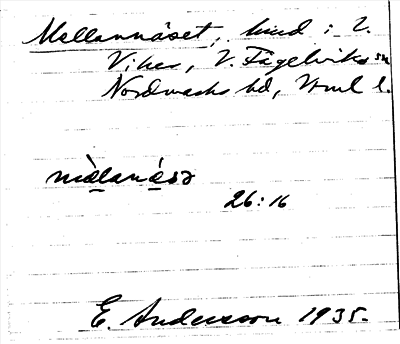 Mellannäset, hmd i V.
Viker, V. Fågelviks sn
Nordmarks hd, Vrml l.
mèlanǽsə
26:16
E. Andersson 1935.